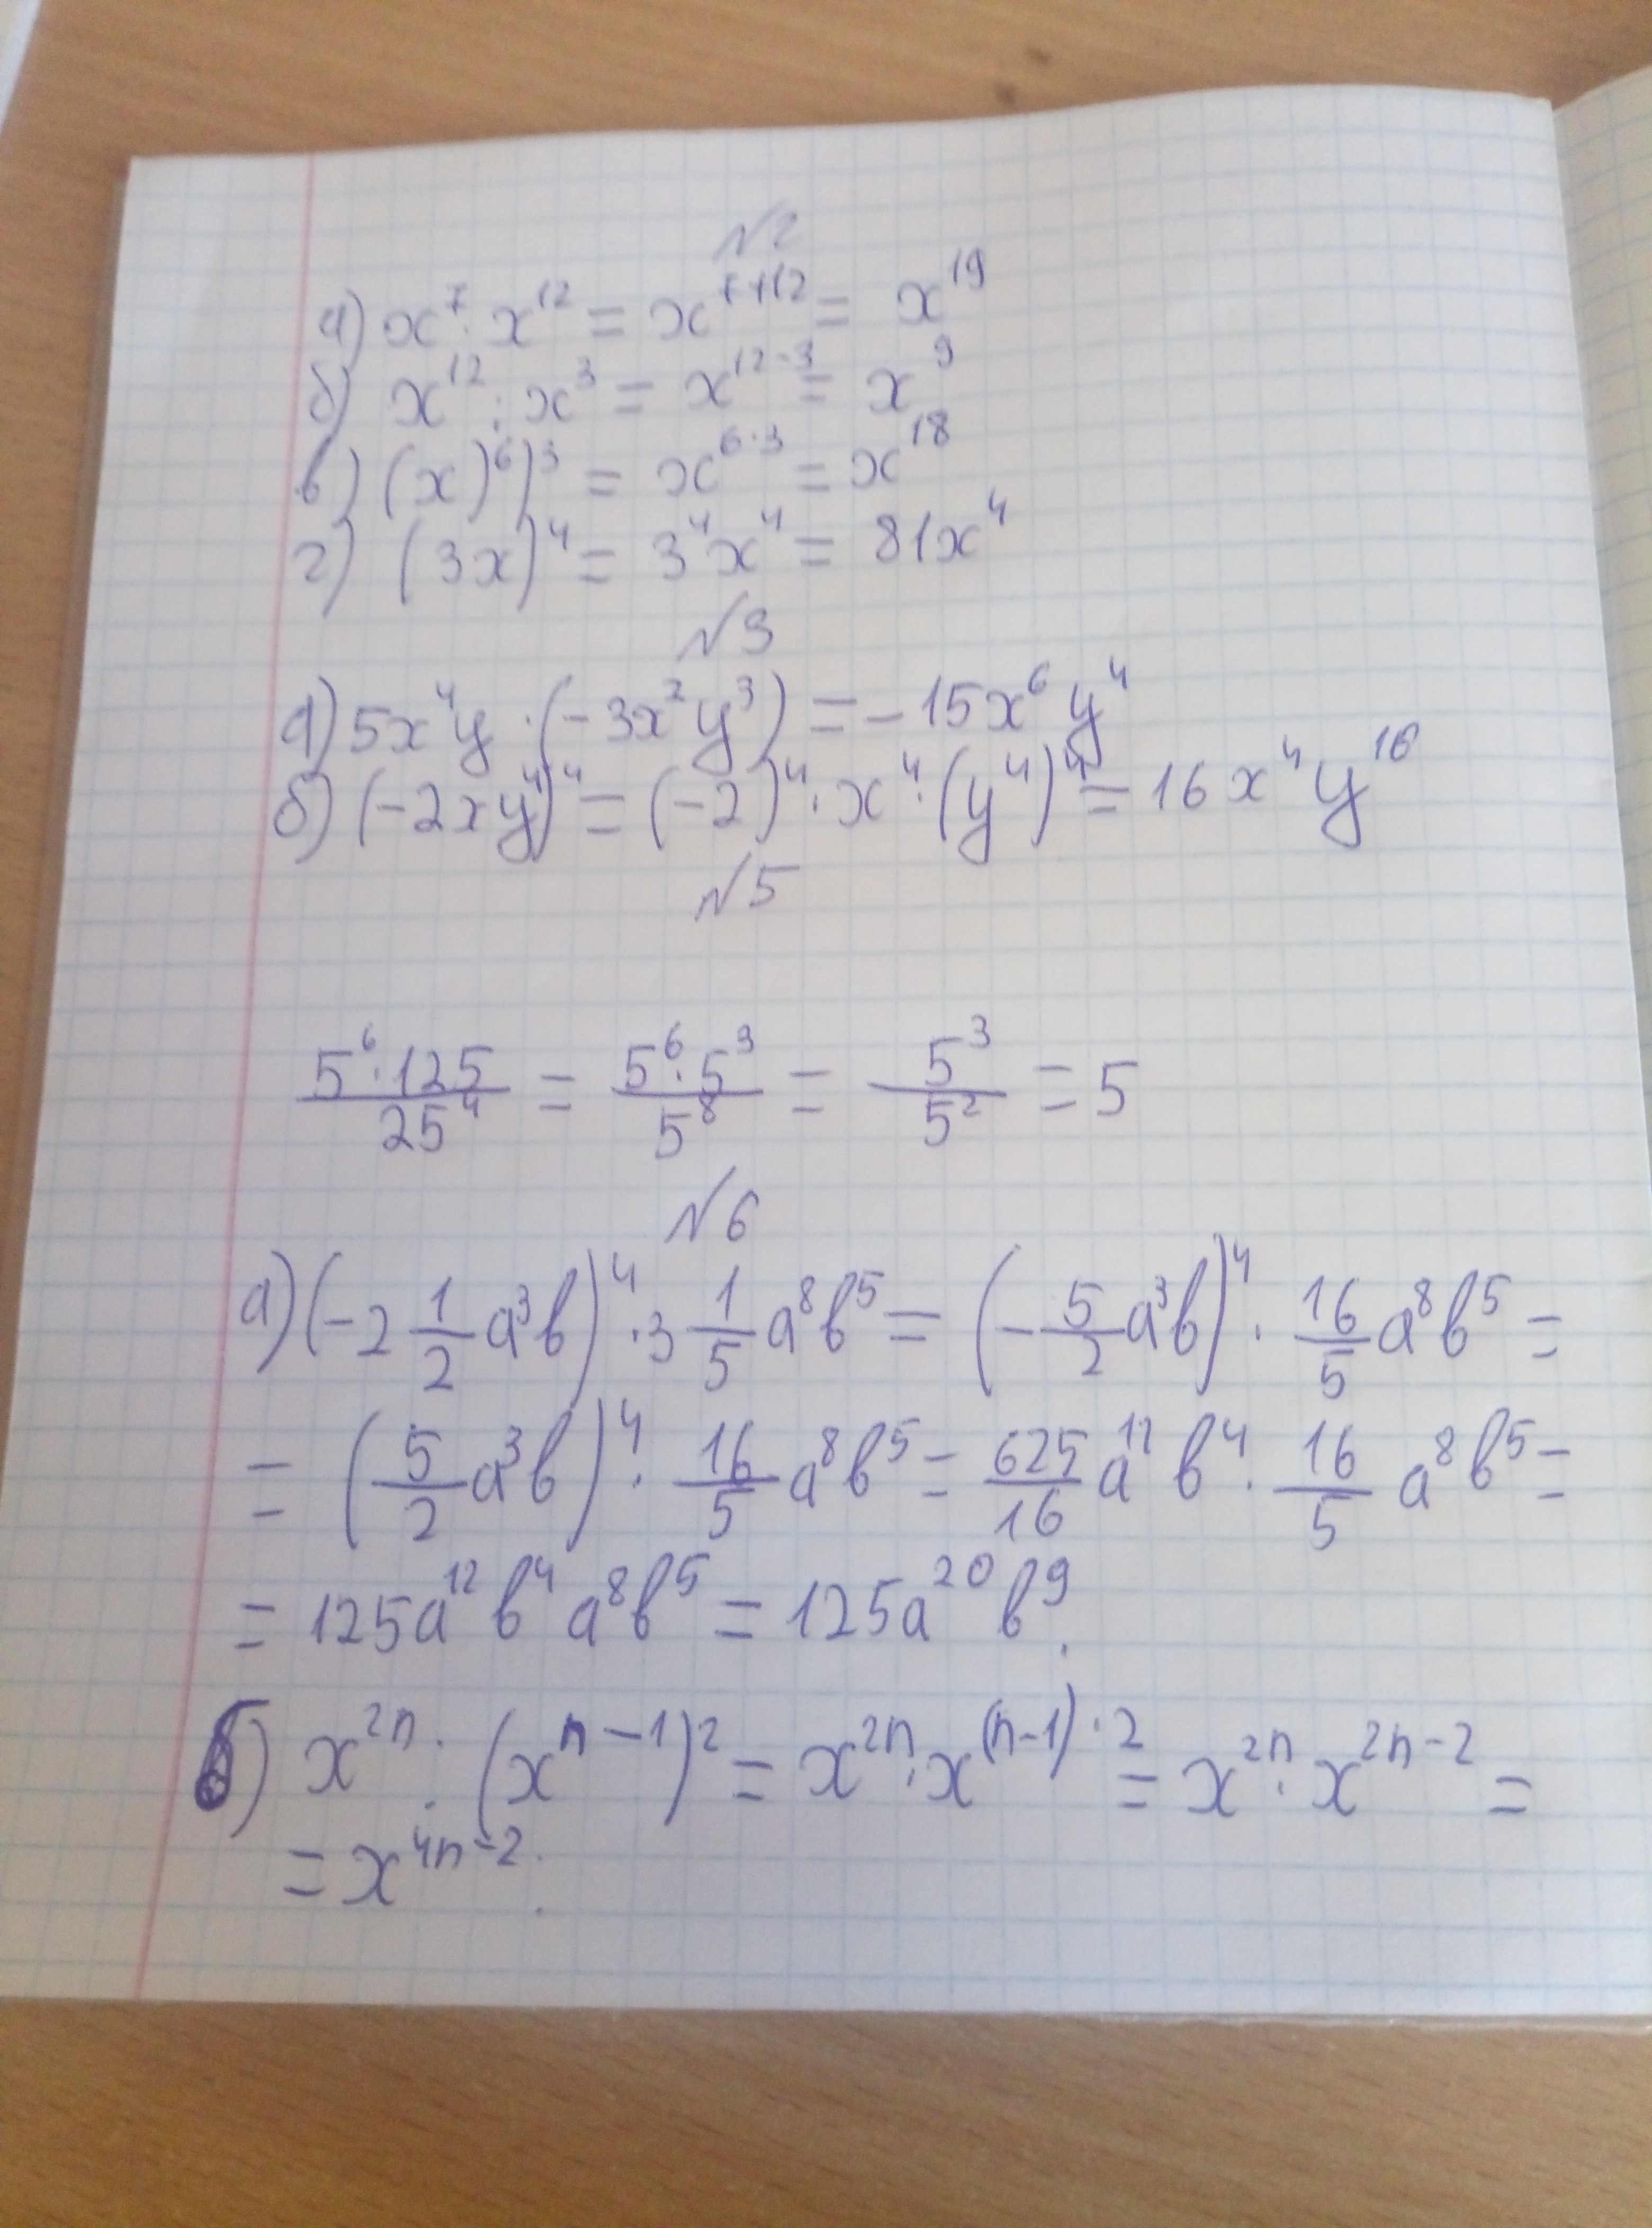 №2
а) x⁷ · x¹² = x⁷⁺¹² = x¹⁹
б) x¹² : x³ = x¹²⁻³ = x⁹
в) (x)⁶)³ = x⁶·³ = x¹⁸
г) (3x)⁴ = 3⁴x⁴ = 81x⁴
№3
а) 5x⁴y · (-3x²y³) = -15x⁶y⁴
б) (-2xy⁴)⁴ = (-2)⁴ · x⁴ · (y⁴)⁴ = 16x⁴y¹⁶
№5
5⁶·125/25⁴ = 5⁶·5³/5⁸ = 5³/5² = 5
№6
а) (-2 1/2 a³b)⁴ · 3 1/5 a⁸b⁵ = (-5/2 a³b)⁴ · 16/5 a⁸b⁵ =
= (5/2 a³b)⁴ · 16/5 a⁸b⁵ = 625/16 a¹²b⁴ · 16/5 a⁸b⁵ =
= 125a¹²b⁴a⁸b⁵ = 125a²⁰b⁹.
б) x²ⁿ : (xⁿ⁻¹)² = x²ⁿ · x⁽ⁿ⁻¹⁾·² = x²ⁿ · x²ⁿ⁻² =
= x⁴ⁿ⁻².